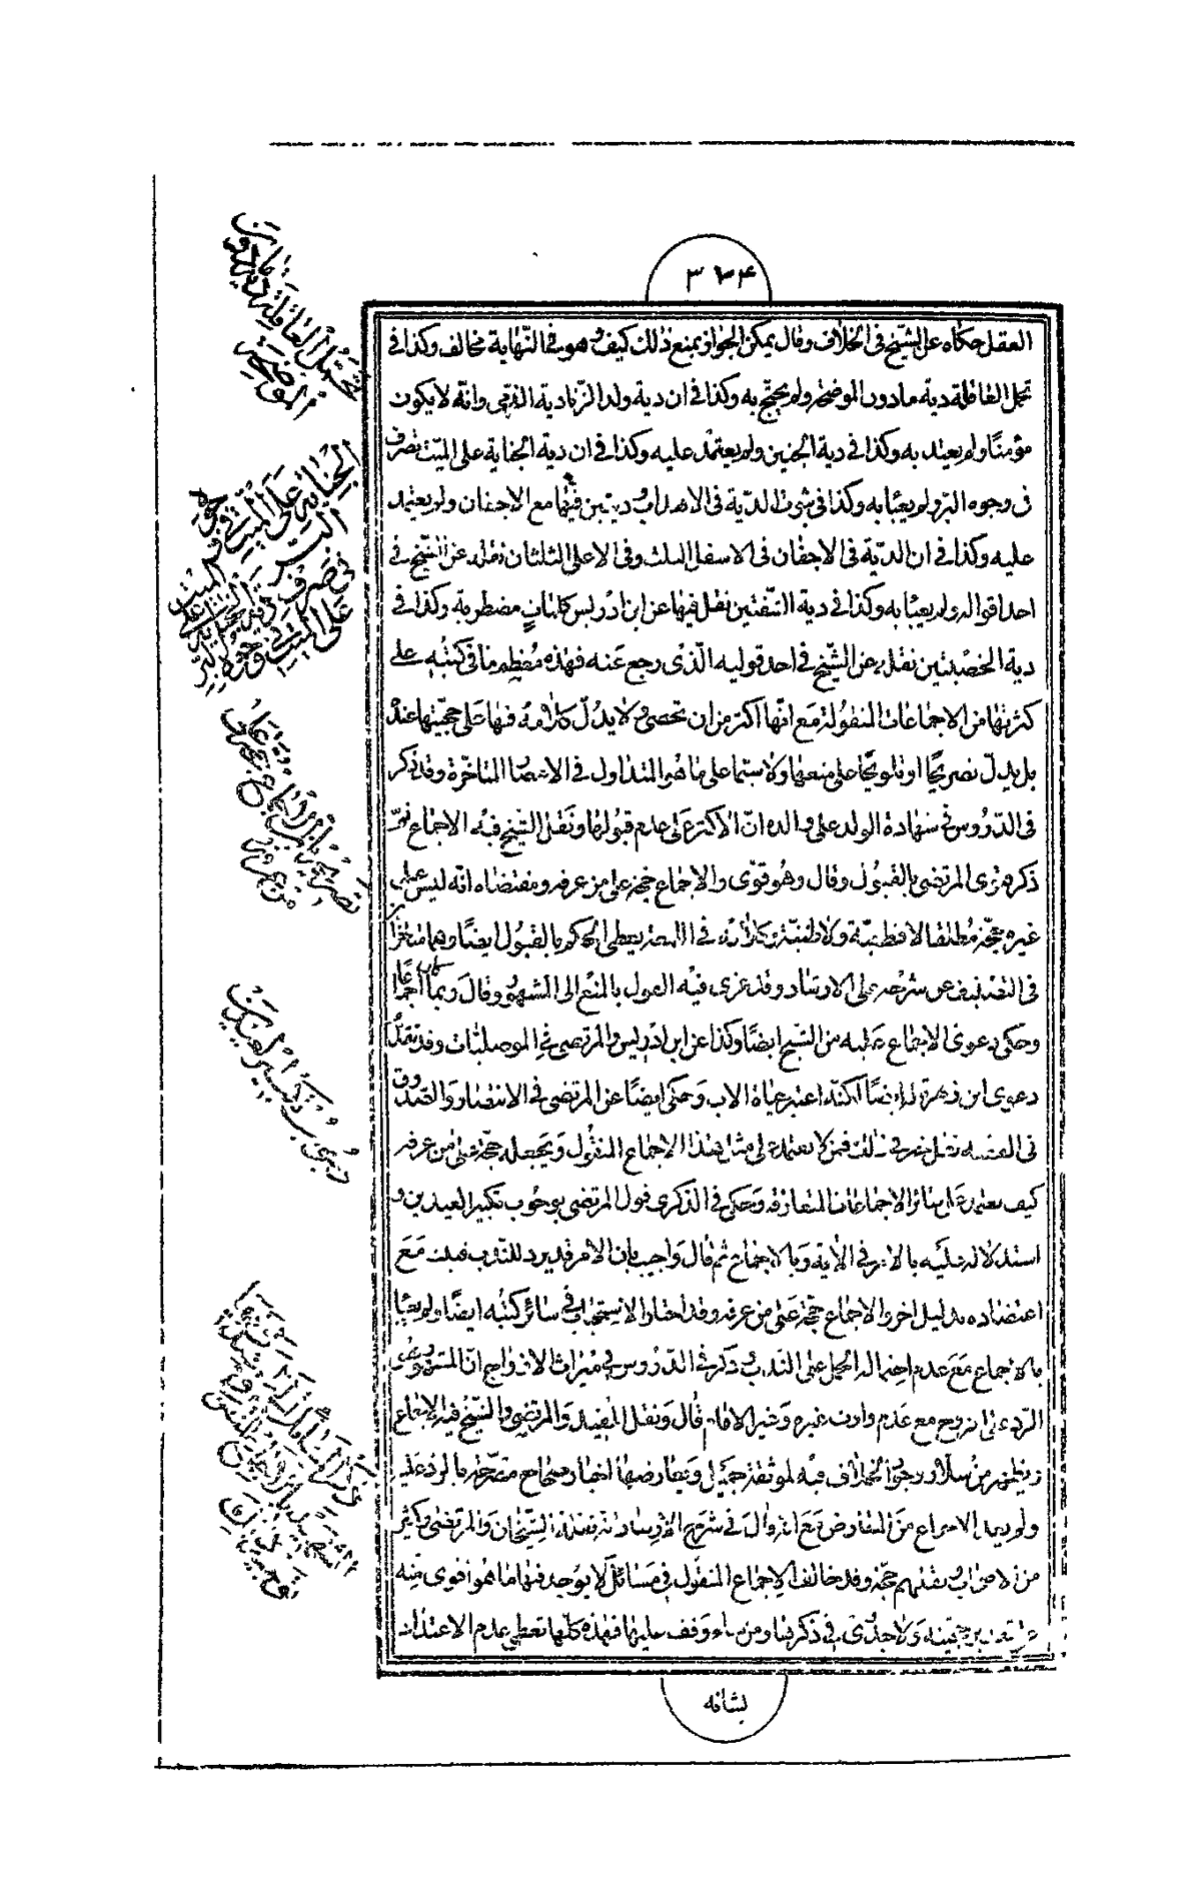 ٣٦٤
العقل حكاه عن الشيخ فى الخلاف وقال يمكن الجواز بمنع ذلك كيف وهو فى النهاية مخالف وكذا فى
تحمل العاقلة دية مادون الموضحة ولم يحتج به وكذا فى ان دية ولد الزنا دية الذمى وانه لا يكون
مؤمنًا ولم يعتد به وكذا فى دية الجنين ولم يعتمد عليه وكذا فى ان دية الجناية على الميت تصرف
فى وجوه البر ولم يعبا به وكذا فى ثبوت الدية فى الاهداب ديتين فيها مع الاجفان ولم يعتمد
عليه وكذا فى ان الدية فى الاجفان فى الاسفل الثلث وفى الاعلى الثلثان نقله عن الشيخ فى
احد اقواله ولم يعبا به وكذا فى دية الشفتين نقل فيها عن ابن ادريس كلمات مضطربة وكذا فى
دية الخصيتين نقله عن الشيخ فى احد قوليه الذى رجع عنه فهذه معظم ما فى كتبه على
كثرتها من الاجماعات المنقولة مع انها اكثر من ان تحصى ولا يدل كلامه فيها على حجيتها عنده
بل يدل تصريحًا او تلويحًا على منعها ولا سيما على ما هو المتداول فى الاعصار المتاخرة وقد ذكر
فى الدروس فى شهادة الولد على والده ان الاكثر على عدم قبولها ونقل الشيخ فيه الاجماع ثم
ذكر فتوى المرتضى بالقبول وقال وهو قوى والاجماع حجة على من عرفه ومقتضاه انه ليس على
غيره حجة مطلقا لا قطعية ولا ظنية وكلامه فى اللمعة يعطى الحكم بالقبول ايضًا وهما متاخرا
عن شرحه على الارشاد وقد عزى فيه القول بالمنع الى المشهور وقال وربما كان اجماعًا
وحكى دعوى الاجماع عليه من الشيخ ايضًا وكذا عن ابن ادريس والمرتضى فى الموصليات وقد تقدم
دعوى ابن زهرة له ايضًا لكنه اعتبر حياة الاب وحكى ايضًا عن المرتضى فى الانتصار والصدوق
فى الفقيه نقل خبر فى ذلك فمن لا يعتمد على مثل هذا الاجماع المنقول ويجعله حجة على من عرفه
كيف يعتمد على سائر الاجماعات المتعارفة وحكى فى الذكرى قول المرتضى بوجوب تكبير العيدين و
استدلاله عليه بالامر فى الاية وبالاجماع ثم قال واجيب بان الامر قد يرد للندب قلت مع
اعتضاده بدليل اخر والاجماع حجة على من عرفه وقد اختار الاستحباب فى سائر كتبه ايضًا ولم يعبا
بالاجماع مع عدم احتماله الحمل على الندب وذكر فى الدروس فى ميراث الازواج ان المشهور
الرد على الزوج مع عدم وارث غيره وغير الامام قال ونقل المفيد والمرتضى والشيخ فيه الاجماع
ويظهر من سلار وجود الخلاف فيه لموثقة جميل ويعارضها اخبار صحاح مصرحة بالرد عليه
ولم يعد الاجماع من المعارض مع انه قال فى شرح الارشاد نقله الشيخان والمرتضى وكثير
من الاصحاب ونقلهم حجة وقد خالف الاجماع المنقول فى مسائل لا يوجد فيها ما هو اقوى منه
ولا جدوى فى ذكرها ومن شاء وقف عليها فهذه كلها تعطى عدم الاعتداد
بشانه
تحمل العاقلة دية مادون
الموضحة
الجناية على الميت
تصريحا
وجوب تكبير العيدين